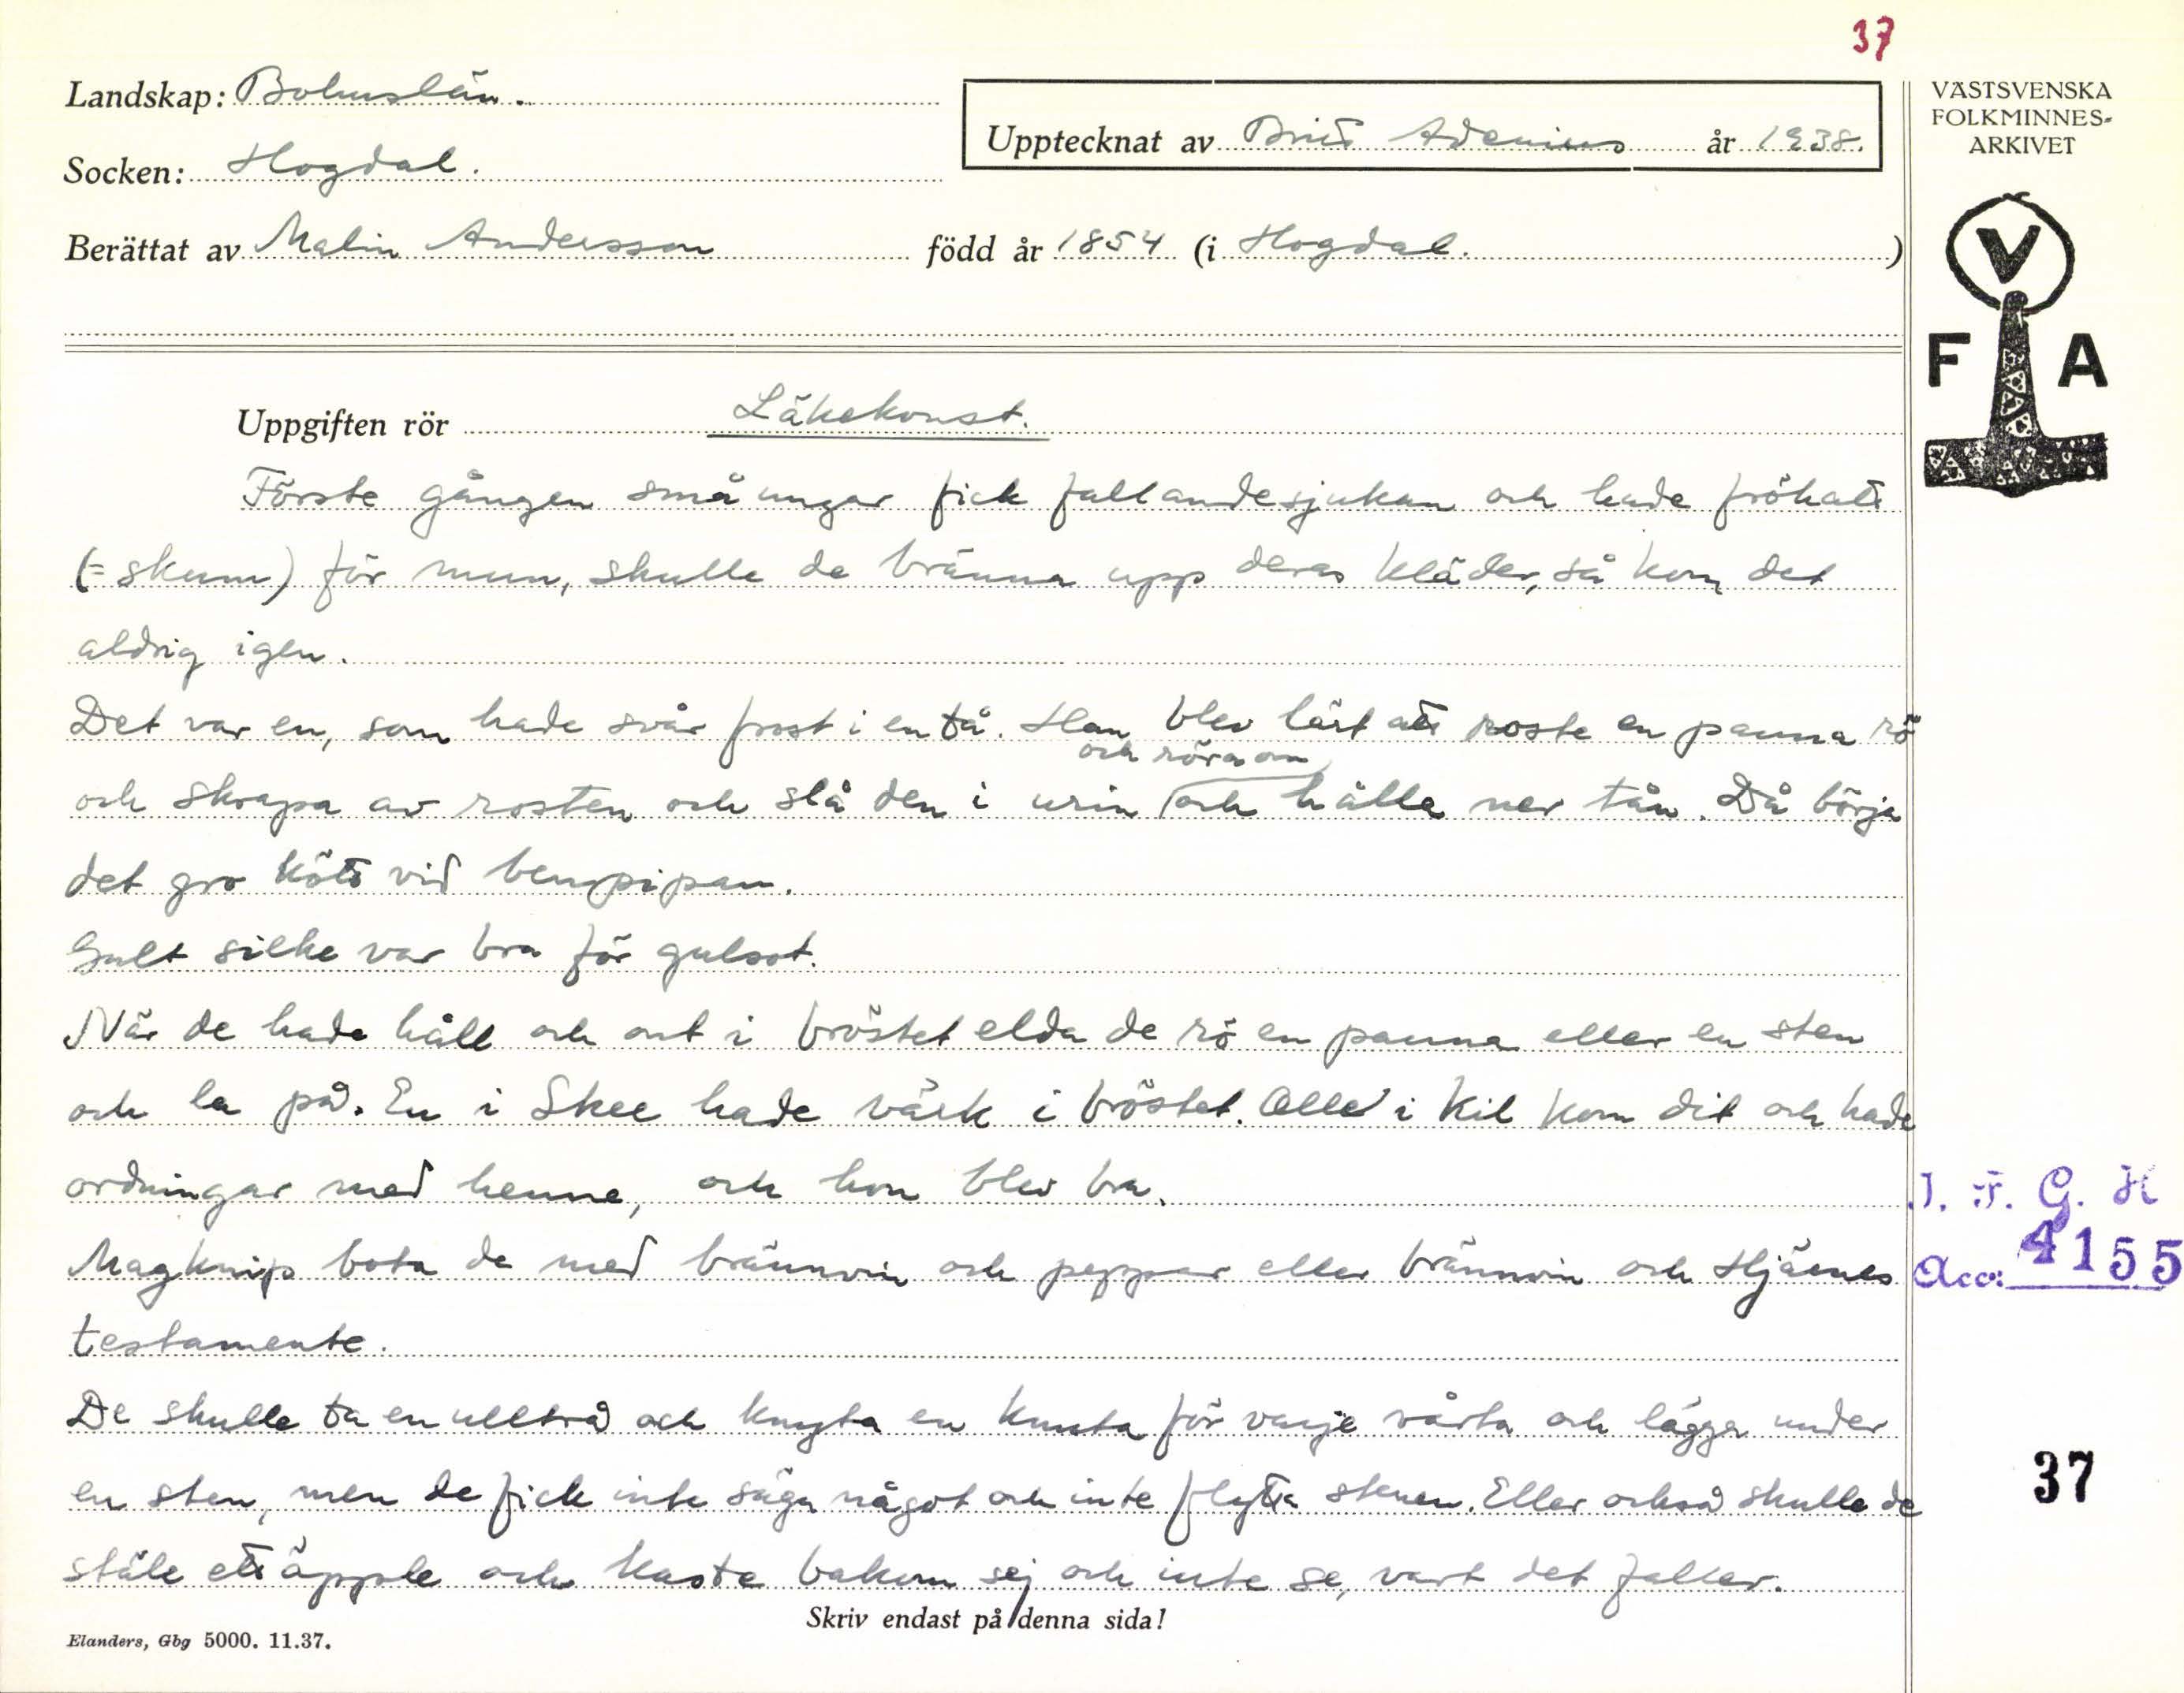 37
Landskap: Bohuslän.
Upptecknat av Brita Adenius år 1938.
Socken: Hogdal.
Berättat av Malin Andersson född år 1854 (i Hogdal.)
VÄSTSVENSKA
FOLKMINNES-
ARKIVET
V
F A
Uppgiften rör Läkekonst.
Förste gången små ungar fick fallandesjukan och hade fröhatt
(= skum) för mun, skulle de bränna upp deras kläder, så kom det
aldrig igen.
Det var en, som hade svår frost i en tå. Han blev lärt att roste en panna rö
och röra om
och skrapa av rosten och slå den i urin och hålla ner tån. Då börja
det gro kött vid benpipan.
Gult silke var bra för gulsot.
När de hade håll och ont i bröstet elda de rö en panna eller en sten
och la på. En i Skee hade värk i bröstet. Olle i Kil kom dit och hade
ordningar med henne, och hon blev bra.
Magknip bota de med brännvin och peppar eller brännvin och Hjärnes
testamente.
De skulle ta en ulltrå och knyta en knuta för varje vårta och lägga under
en sten, men de fick inte säga något och inte flytta stenen. Eller också skulle de
stäle ett äpple och kaste bakom sej och inte se, vart det faller.
I. F. G. H
Acc: 4155
37
Skriv endast på denna sida!
Elanders, Gbg 5000. 11.37.